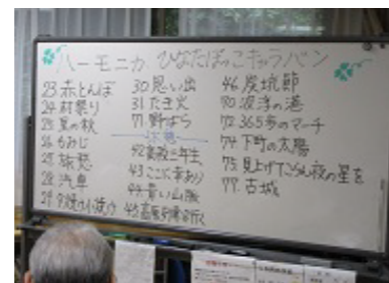 ハーモニカ ひなたぼっこキャラバン
23 赤とんぼ
24 村祭り
25 里の秋
26 もみじ
27 旅愁
28 汽車
29 夕焼け小焼け
30 思い出
31 たき火
71 野ばら
42 高校三年生
43 ここに幸あり
44 青い山脈
45 高原列車は行く
46 炭坑節
70 波浮の港
72 365歩のマーチ
74 下町の太陽
75 見上げてごらん夜の星を
77 古城